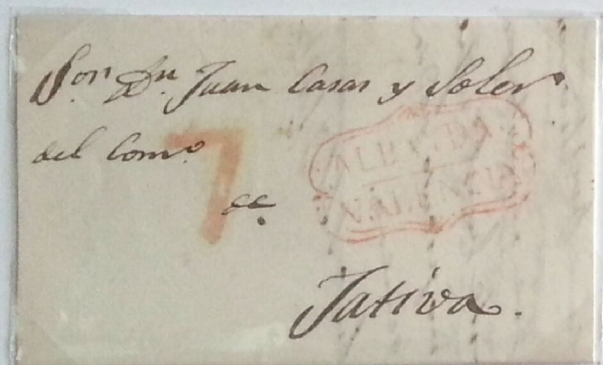 Sor. Dn. Juan Casas y Soler
del Como.
7
ALBAYDA
VALENCIA
Jativa.